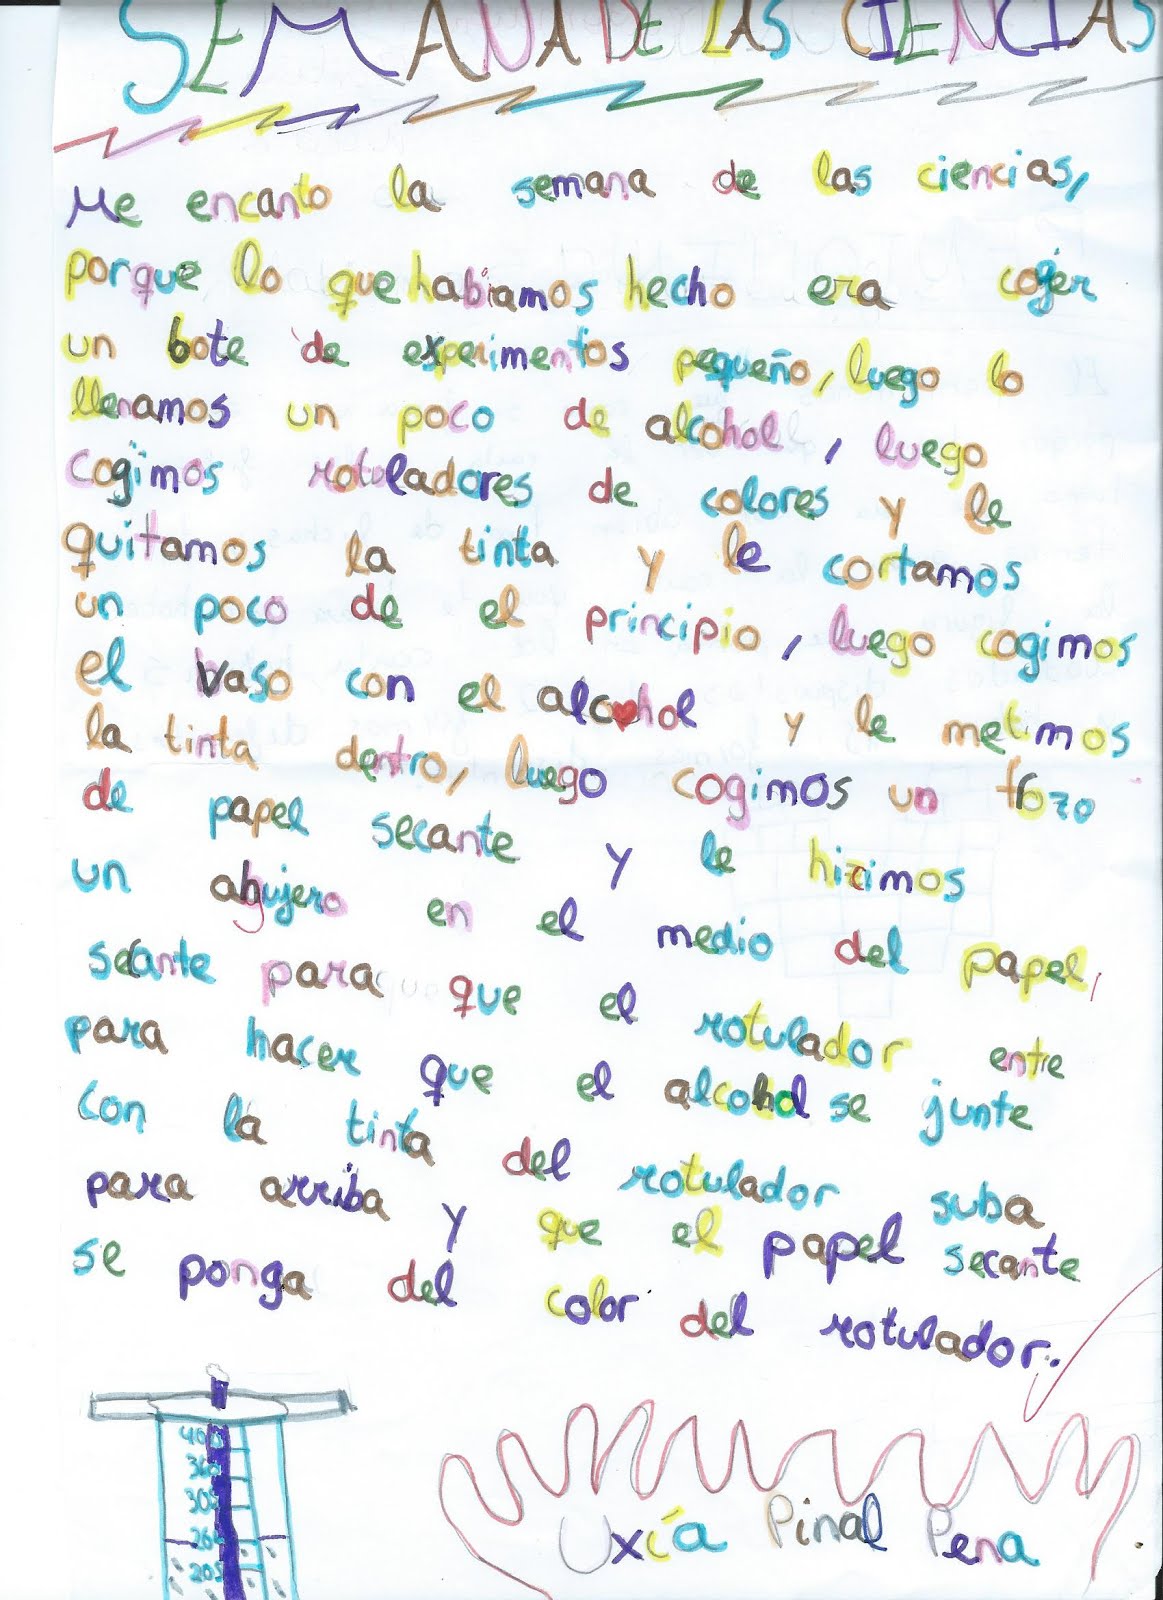 SEMANA DE LAS CIENCIAS
Me encanto la semana de las ciencias,
porque lo que habiamos hecho era cojer
un bote de experimentos pequeño, luego lo
llenamos un poco de alcohol, luego
cogimos rotuladores de colores y le
quitamos la tinta y le cortamos
un poco de el principio, luego cogimos
el vaso con el alcohol y le metimos
la tinta dentro, luego cogimos un trozo
de papel secante y le hizimos
un abujero en el medio del papel,
secante para que el rotulador entre
para hacer que el alcohol se junte
con la tinta del rotulador suba
para arriba y que el papel secante
se ponga del color del rotulador.
400
360
305
260
205
Uxía Pinal Pena